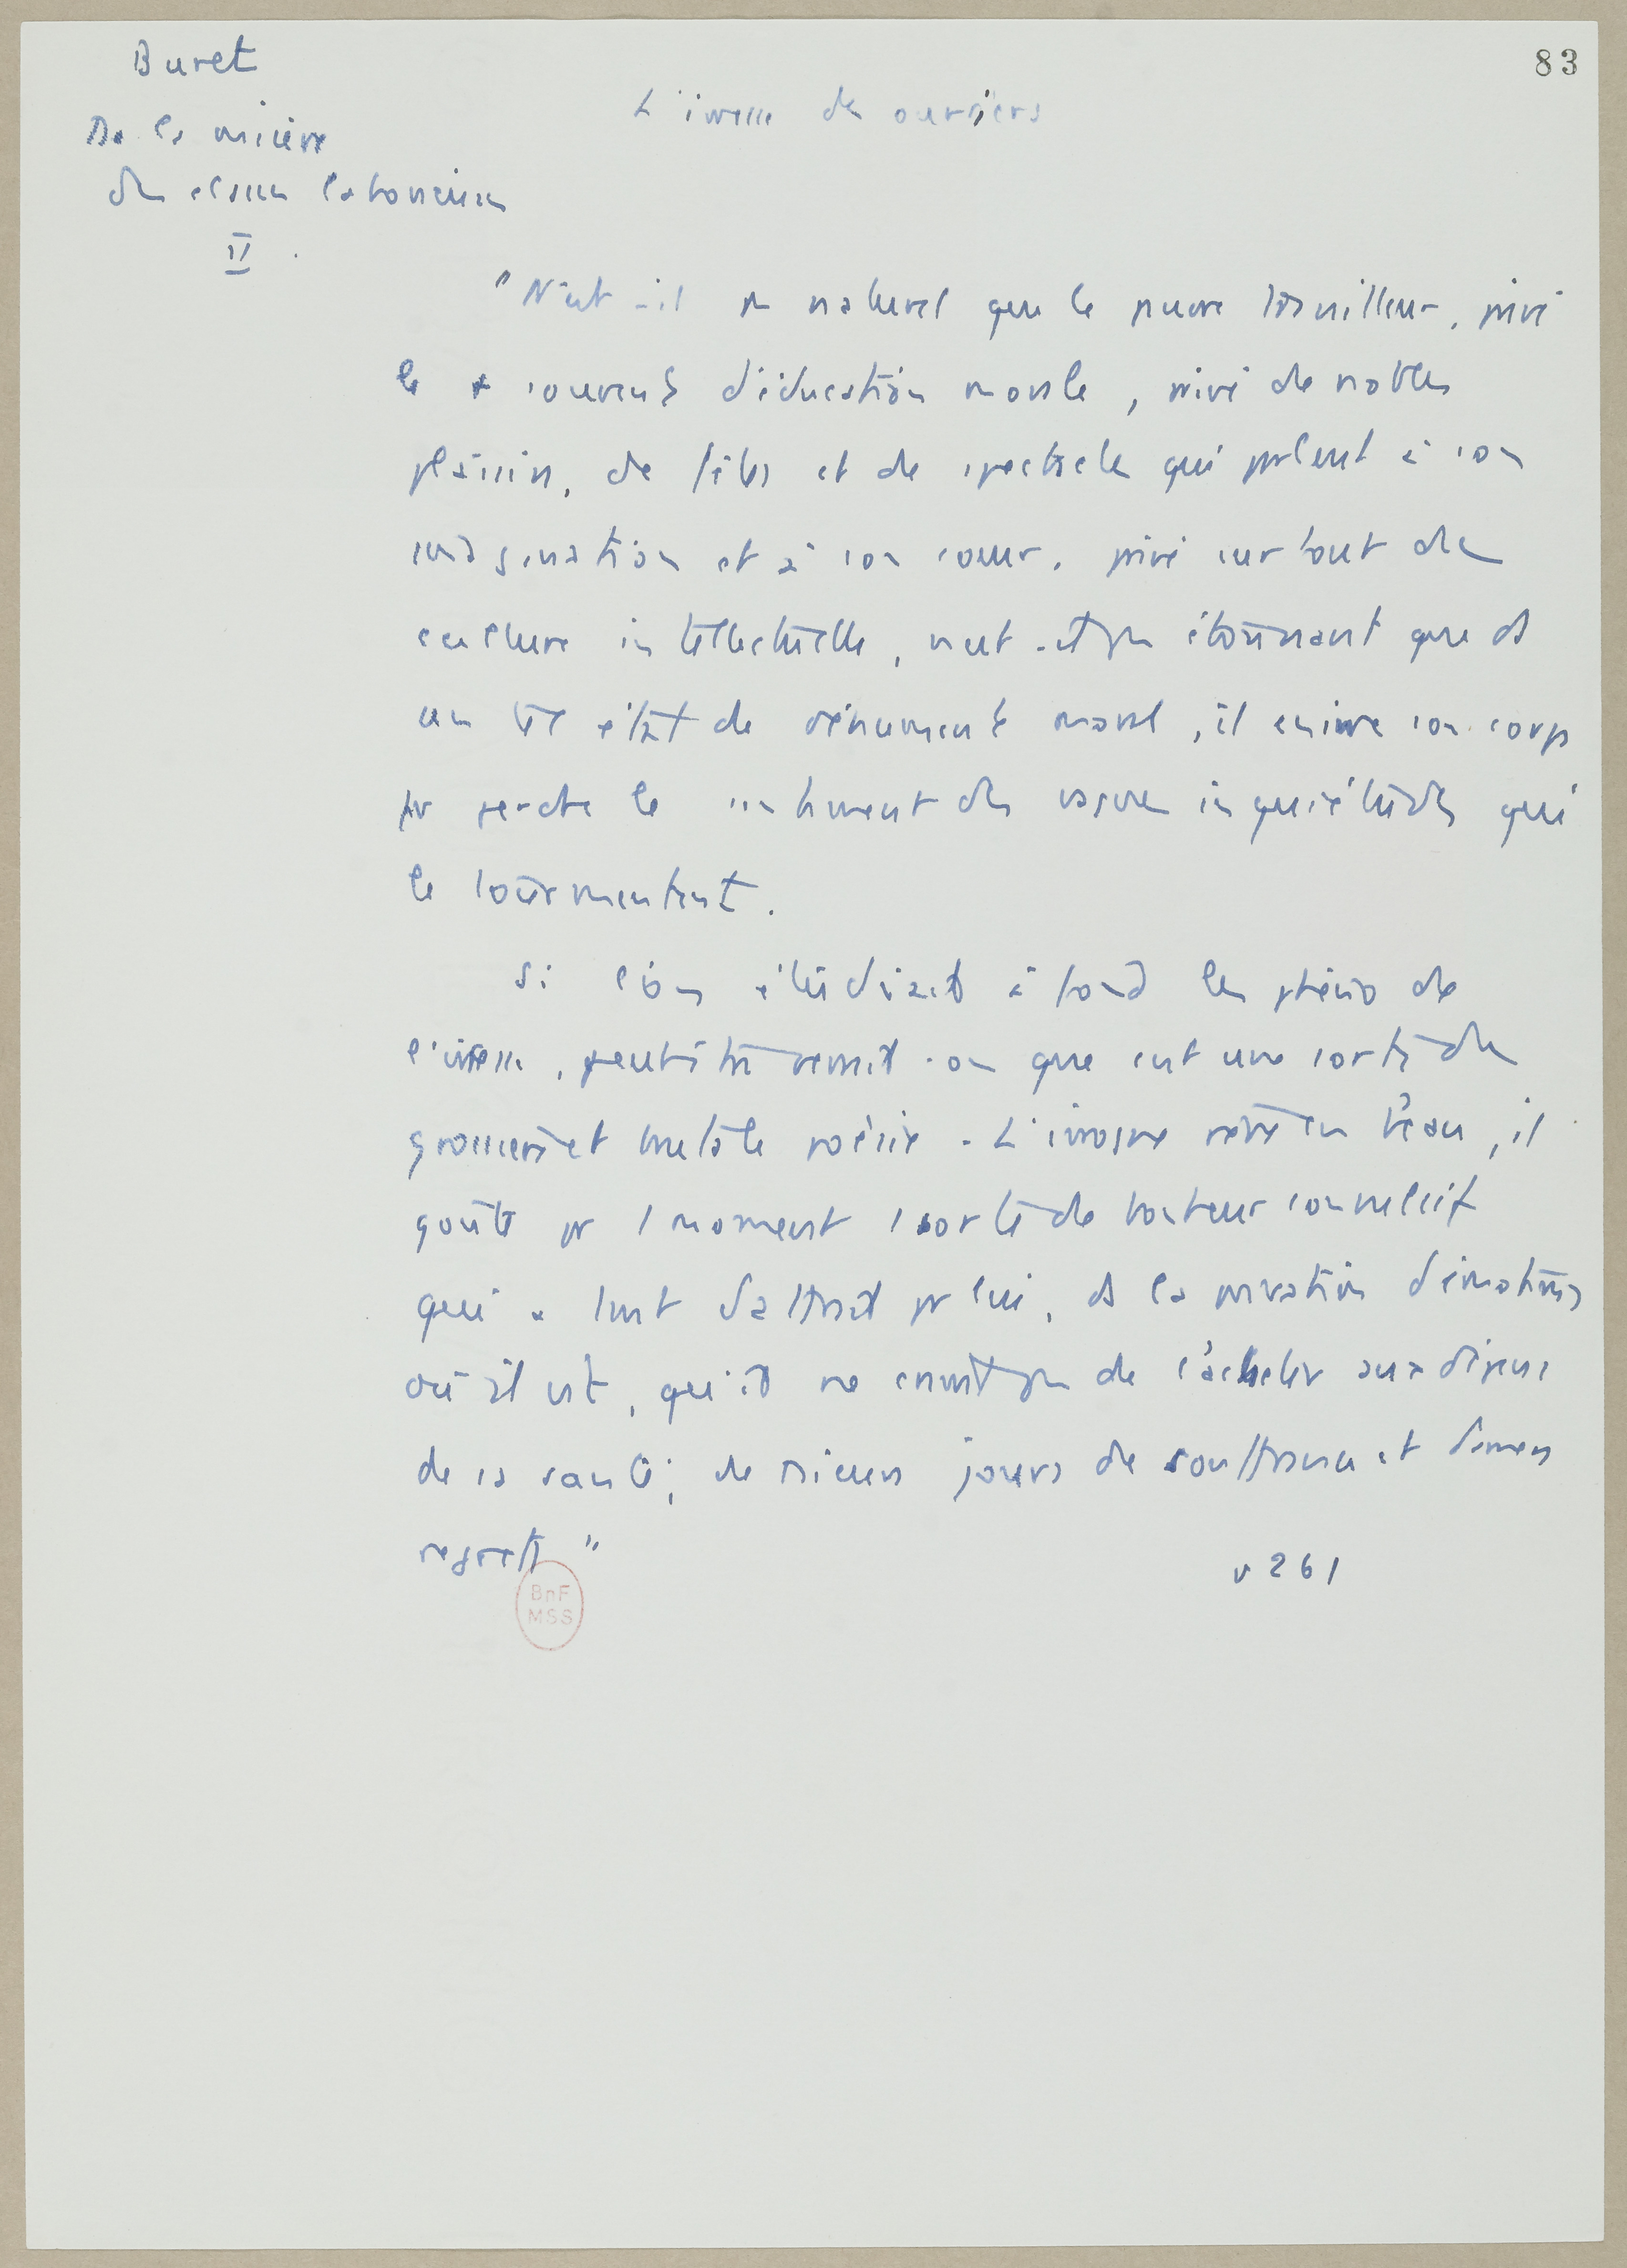 Buret
83
L'ivresse des ouvriers
De la misère
des classes laborieuses
II
"N'est-il pas naturel que le pauvre travailleur, privé
le + souvent d'éducation morale, privé de nobles
plaisirs, de fêtes et de spectacles qui parlent à son
imagination et à son cœur, privé surtout de
culture intellectuelle, n'est-il pas étonnant que ds
un tel état de dénument moral, il enivre son corps
pr perdre le sentiment des vagues inquiétudes qui
le tourmentent.
Si l'on étudiait à fond les phéno de
l'ivresse, peut être verrait-on que c'est une sorte de
grossière et brutale poésie. L'ivrogne rêve en beau, il
goûte pr 1 moment 1 sorte de bonheur convulsif
qui a tant d'attrait pr lui, ds la privation d'émotions
où il est, qu'il ne craint pas de l'acheter aux dépens
de sa santé, de plusieurs jours de souffrance et d'amers
regrets"
v 261
BnF
MSS